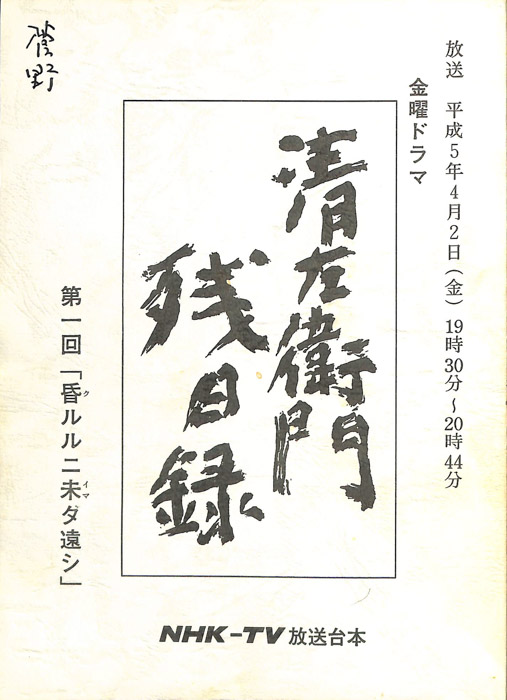 放送 平成5年4月2日(金)19時30分~20時44分
金曜ドラマ
清左衛門
残日録
第一回「昏ルルニ未ダ遠シ」
ク
イマ
NHK-TV 放送台本